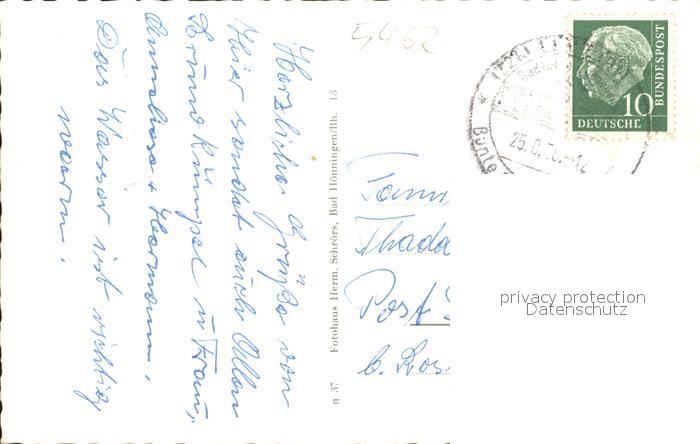 Herzliche Grüße von
hier sendet euch Allen
Bruno Rümpel u Frau,
Anneliese + Hermann.
Das Wasser ist richtig
warm.
5462
Fotohaus Herm. Schrörs, Bad Hönningen/Rh. 13
n 37
10
DEUTSCHE BUNDESPOST
25.
Bunte
Fam
Thada
Post
b.
privacy protection
Datenschutz